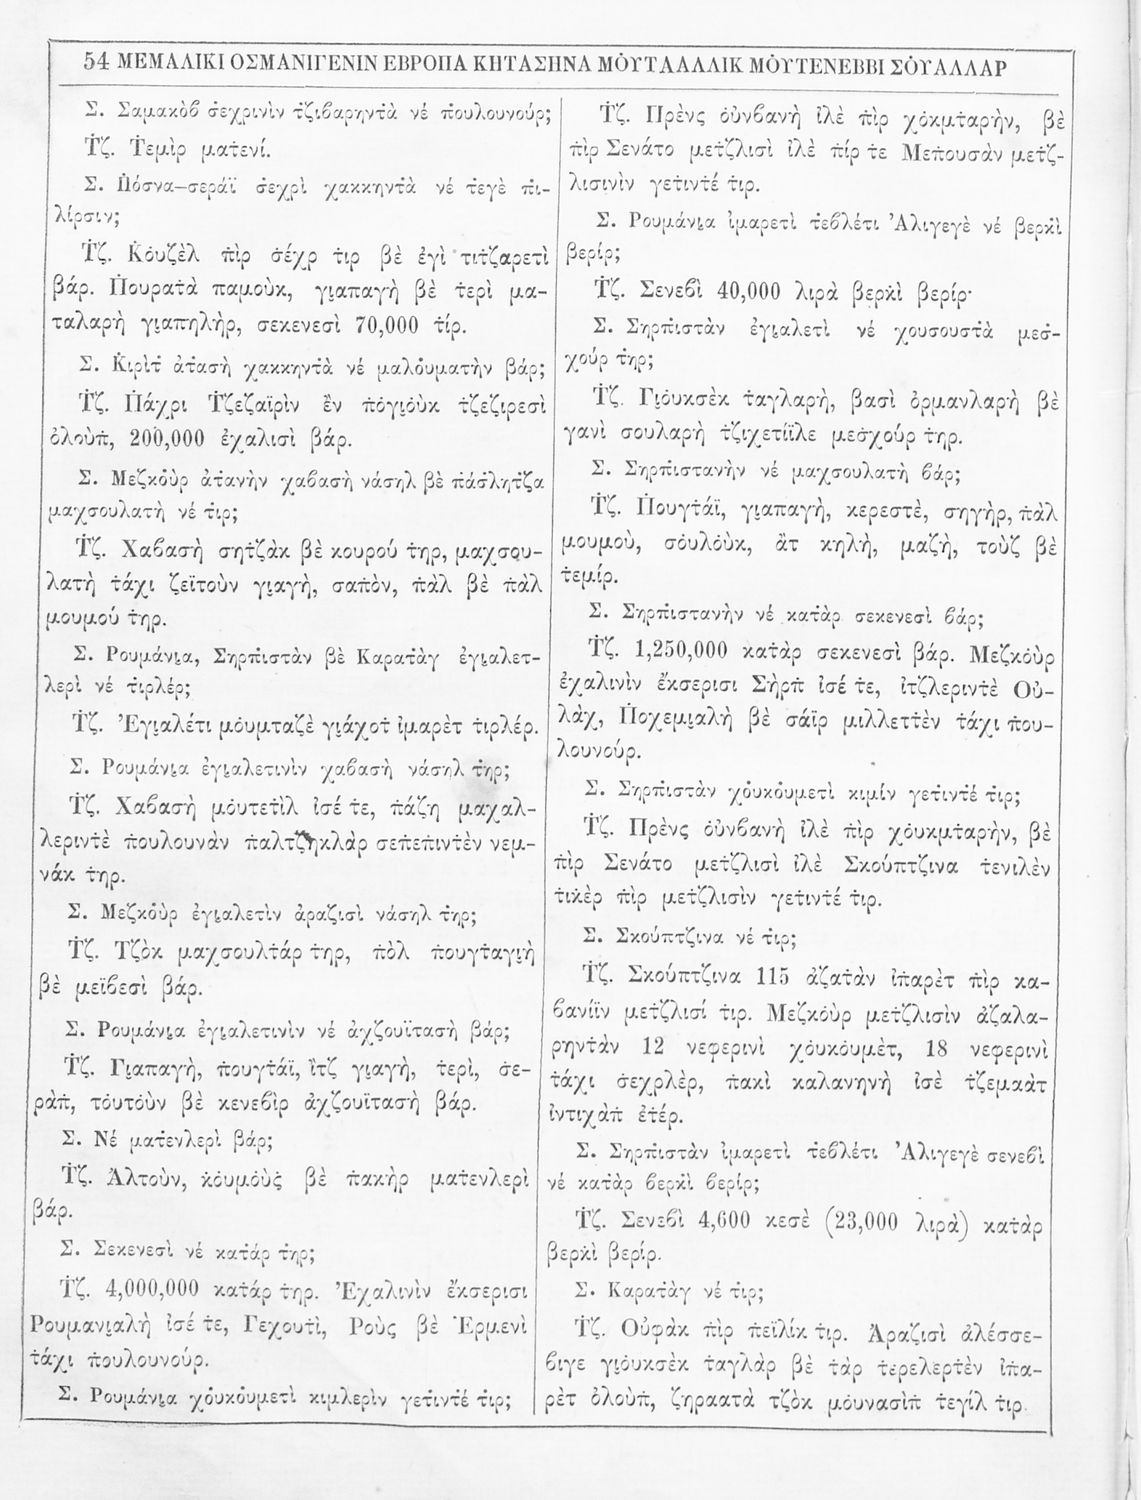 54 ΜΕΜΑΛΙΚΙ ΟΣΜΑΝΙΓΕΝΙΝ ΕΒΡΟΠΑ ΚΗΤΑΣΗΝΑ ΜΟΥΤΑΛΛΛΙΚ ΜΟΥΤΕΝΕΒΒΙ ΣΟΥΑΛΛΑΡ
Σ. Σαμακὸβ σ̇εχρινὶν τζιβαρηντὰ νέ π̇ουλουνούρ;
Τ̇ζ. Τεμὶρ ματενί.
Σ. Π̇όσνα—σεράϊ σ̇εχρὶ χακκηντὰ νέ τ̇εγὲ π̇ι-
λίρσιν;
Τ̇ζ. Κ̇όυζὲλ π̇ὶρ σ̇έχρ τ̇ιρ βὲ ἐγὶ τιτζαρετὶ
βάρ. Π̇ουρατ̇ὰ παμοὺκ, γι̯απαγὴ βὲ τ̇ερὶ μα-
ταλαρὴ γι̯απηλὴρ, σεκενεσὶ 70,000 τ̇ίρ.
Σ. Κ̇ιρὶτ ἀτ̇ασὴ χακκηντὰ νέ μαλο̇υματὴν βάρ;
Τ̇ζ. Π̇άχρι Τ̇ζεζαϊρὶν ἒν π̇όγι̇οὺκ τ̇ζεζιρεσὶ
ὀλοὺπ̇, 200,000 ἐχαλισὶ βάρ.
Σ. Μεζκο̇ὺρ ἀτ̇ανὴν χαβασὴ νάσηλ βὲ π̇άσ̇λητ̇ζα
μαχσουλατὴ νέ τ̇ιρ;
Τ̇ζ. Χαβασὴ σητ̇ζὰκ βὲ κουρού τ̇ηρ, μαχσου-
λατὴ τ̇άχι ζεϊτοὺν γι̯αγὴ, σαπὸν, π̇ὰλ βὲ π̇ὰλ
μουμού τ̇ηρ.
Σ. Ρουμάνι̯α, Σηρπ̇ιστὰν βὲ Καρατ̇ὰγ ἐγι̯αλετ-
λερὶ νέ τ̇ιρλέρ;
Τ̇ζ. Ἐγι̯αλέτι μο̇υμταζὲ γι̯άχοτ̇ ἰμαρὲτ τ̇ιρλέρ.
Σ. Ρουμάνι̯α ἐγι̯αλετινὶν χαβασὴ νάσηλ τ̇ηρ;
Τ̇ζ. Χαβασὴ μο̇υτετὶλ ἰσέ τ̇ε, π̇άζη μαχαλ-
λεριντ̇ὲ π̇ουλουνὰν π̇αλτζηκλὰρ σεπεπιντ̇ὲν νεμ-
νάκ τ̇ηρ.
Σ. Μεζκο̇ὺρ ἐγι̯αλετὶν ἀραζισὶ νάσηλ τ̇ηρ;
Τ̇ζ. Τζὸκ μαχσουλτ̇άρ τ̇ηρ, π̇ὸλ π̇ουγτ̇αγι̯ὴ
βὲ μεϊβεσὶ βάρ.
Σ. Ρουμάνι̯α ἐγι̯αλετινὶν νέ ἀχζουϊτασὴ βάρ;
Τ̇ζ. Γι̯απαγὴ, π̇ουγτ̇άϊ, ἲτζ γι̯αγὴ, τ̇ερὶ, σ̇ε-
ρὰπ̇, το̇υτο̇ὺν βὲ κενεβὶρ ἀχζουϊτασὴ βάρ.
Σ. Νέ ματ̇ενλερὶ βάρ;
Τ̇ζ. Ἀλτοὺν, κ̇ο̇υμο̇ὺς̇ βὲ π̇ακὴρ ματ̇ενλερὶ
βάρ.
Σ. Σεκενεσὶ νέ κατ̇άρ τ̇ηρ;
Τ̇ζ. 4,000,000 κατ̇άρ τ̇ηρ. Ἐχαλινὶν ἔκσερισι
Ρουμανι̯αλὴ ἰσέ τ̇ε, Γεχουτ̇ὶ, Ροὺς βὲ Ἐρμενὶ
τ̇άχι π̇ουλουνούρ.
Σ. Ρουμάνι̯α χο̇υκο̇υμετὶ κιμλερὶν γετ̇ιντ̇έ τ̇ιρ;
Τ̇ζ. Πρὲνς ο̇ὐνβανὴ ἰλὲ π̇ὶρ χο̇κμτ̇αρὴν, βὲ
π̇ὶρ Σενάτο μετ̇ζλισὶ ἰλὲ π̇ίρ τ̇ε Μεπ̇ουσὰν μετ̇ζ-
λισινὶν γετ̇ιντ̇έ τ̇ιρ.
Σ. Ρουμάνι̯α ἰμαρετὶ τ̇εβλέτι Ἀλιγεγὲ νέ βερκὶ
βερίρ;
Τ̇ζ. Σενεβὶ 40,000 λιρὰ βερκὶ βερίρ·
Σ. Σηρπ̇ιστὰν ἐγι̯αλετὶ νέ χουσουστ̇ὰ μεσ̇-
χούρ τ̇ηρ;
Τ̇ζ. Γι̇ουκσὲκ τ̇αγλαρὴ, βασὶ ὀρμανλαρὴ βὲ
γανὶ σουλαρὴ τ̇ζιχετίϊλε μεσ̇χούρ τ̇ηρ.
Σ. Σηρπ̇ιστανὴν νέ μαχσουλατὴ βάρ;
Τ̇ζ. Π̇ουγτ̇άϊ, γι̯απαγὴ, κερεστὲ, σηγὴρ, π̇ὰλ
μουμοὺ, σο̇υλο̇ὺκ, ἂτ κηλὴ, μαζὴ, τοὺζ βὲ
τ̇εμίρ.
Σ. Σηρπ̇ιστανὴν νέ κατ̇ὰρ σεκενεσὶ βάρ;
Τ̇ζ. 1,250,000 κατ̇ὰρ σεκενεσὶ βάρ. Μεζκο̇ὺρ
ἐχαλινὶν ἔκσερισι Σὴρπ̇ ἰσέ τ̇ε, ἰτζλεριντ̇ὲ Οὐ-
λὰχ, Π̇οχεμι̯αλὴ βὲ σάϊρ μιλλεττ̇ὲν τ̇άχι π̇ου-
λουνούρ.
Σ. Σηρπ̇ιστὰν χο̇υκο̇υμετὶ κιμὶν γετ̇ιντ̇έ τ̇ιρ;
Τ̇ζ. Πρὲνς ο̇ὐνβανὴ ἰλὲ π̇ὶρ χο̇υκμτ̇αρὴν, βὲ
π̇ὶρ Σενάτο μετ̇ζλισὶ ἰλὲ Σκούπτζινα τ̇ενιλὲν
τ̇ικὲρ π̇ὶρ μετ̇ζλισὶν γετ̇ιντ̇έ τ̇ιρ.
Σ. Σκούπτζινα νέ τ̇ιρ;
Τ̇ζ. Σκούπτζινα 115 ἀζατ̇ὰν ἰπ̇αρὲτ π̇ὶρ κα-
βανίϊν μετ̇ζλισί τ̇ιρ. Μεζκο̇ὺρ μετ̇ζλισὶν ἀζαλα-
ρηντ̇ὰν 12 νεφερινὶ χο̇υκο̇υμὲτ, 18 νεφερινὶ
τ̇άχι σ̇εχρλὲρ, π̇ακὶ καλανηνὴ ἰσὲ τ̇ζεμαὰτ
ἰντιχὰπ̇ ἐτ̇έρ.
Σ. Σηρπ̇ιστὰν ἰμαρετὶ τ̇εβλέτι Ἀλιγεγὲ σενεβὶ
νέ κατ̇ὰρ βερκὶ βερίρ;
Τ̇ζ. Σενεβὶ 4,600 κεσὲ (23,000 λιρὰ) κατ̇ὰρ
βερκὶ βερίρ.
Σ. Καρατ̇ὰγ νέ τ̇ιρ;
Τ̇ζ. Οὐφὰκ π̇ὶρ π̇εϊλίκ τ̇ιρ. Ἀραζισὶ ἀλέσσε-
βιγε γι̇ουκσὲκ τ̇αγλὰρ βὲ τ̇ὰρ τ̇ερελερτ̇ὲν ἰπ̇α-
ρὲτ ὀλοὺπ̇, ζηραατὰ τζὸκ μο̇υνασὶπ̇ τ̇εγίλ τ̇ιρ.